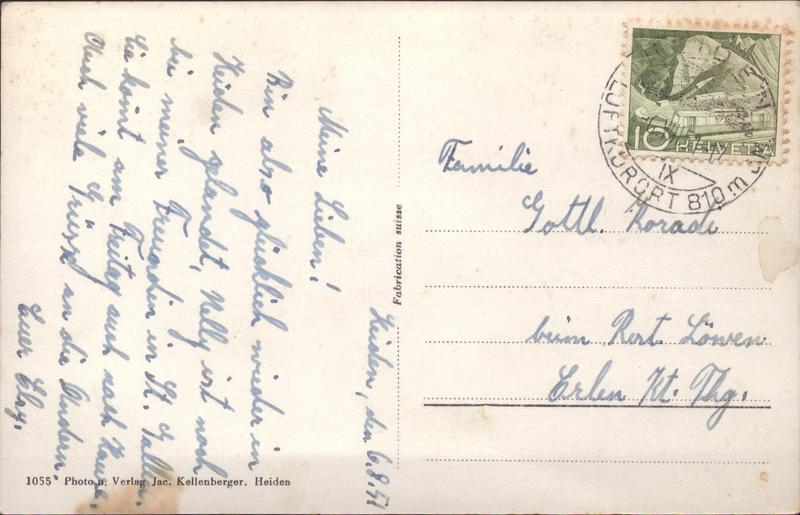 Heiden, den 6.8.51
Meine Lieben!
Bin also glücklich wieder in
Heiden gelandet, Nelly ist noch
bei meiner Freundin in St. Gallen.
Sie komt am Freitag auch nach Hause.
Auch viele Grüsse an die Andern
Euer
Familie
Gottl.
beim Rest. Löwen
Erlen Kt. Thg.
Fabrication suisse
1055 Photo u. Verlag Jac. Kellenberger, Heiden
10 HELVETIA
HEIDEN
LUFTKURORT 810 m
IX